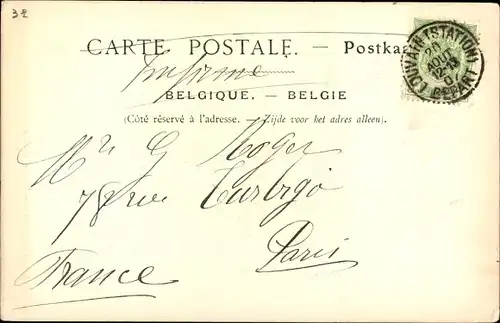 32
CARTE POSTALE. — Postkaa
Imprimé
BELGIQUE. — BELGIE
(Côté réservé à l'adresse. — Zijde voor het adres alleen).
LOUVAIN (STATION)
20
AOUT
12-13
DEPART
Mr G Roger
78 rue Turbigo
Paris
France